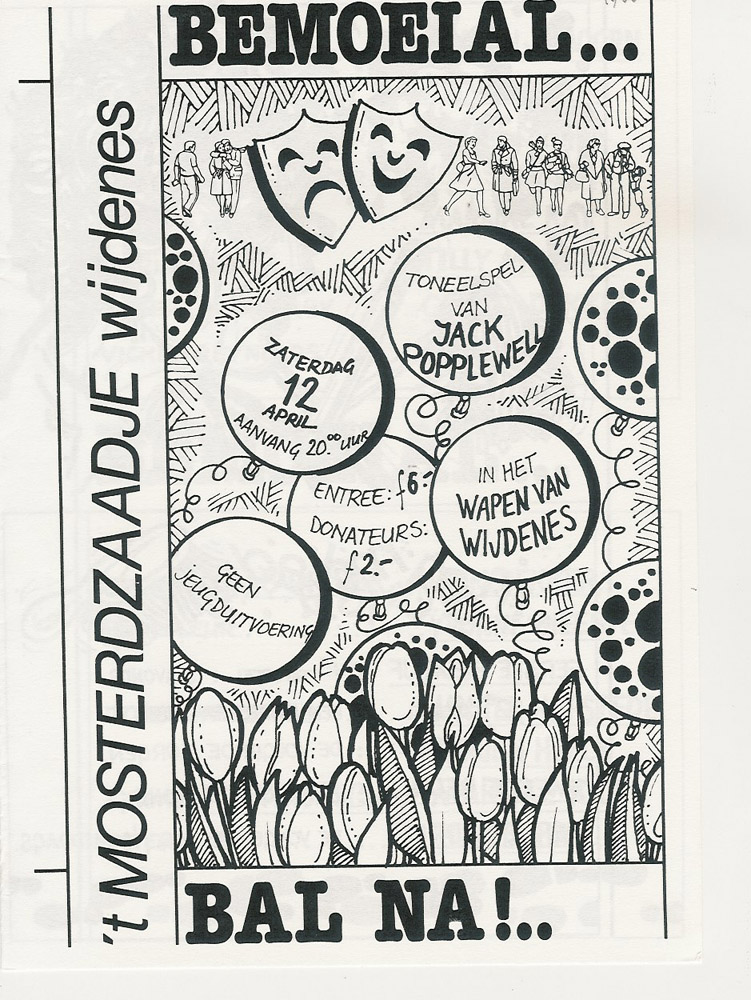 BEMOEIAL...
't MOSTERDZAADJE wijdenes
TONEELSPEL
VAN
JACK
POPPLEWELL
ZATERDAG
12
APRIL
AANVANG 20.⁰⁰ UUR
ENTREE: f6.-
DONATEURS:
f 2.-
IN HET
WAPEN VAN
WIJDENES
GEEN
JEUGDUITVOERING
BAL NA!..